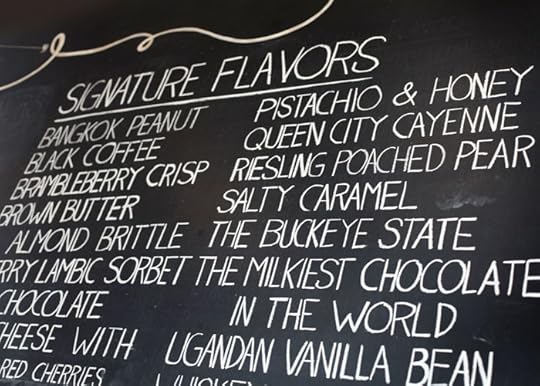 SIGNATURE FLAVORS
BANGKOK PEANUT
BLACK COFFEE
BRAMBLEBERRY CRISP
BROWN BUTTER
ALMOND BRITTLE
LAMBIC SORBET
CHOCOLATE
WITH
RED CHERRIES
PISTACHIO & HONEY
QUEEN CITY CAYENNE
RIESLING POACHED PEAR
SALTY CARAMEL
THE BUCKEYE STATE
THE MILKIEST CHOCOLATE
IN THE WORLD
UGANDAN VANILLA BEAN